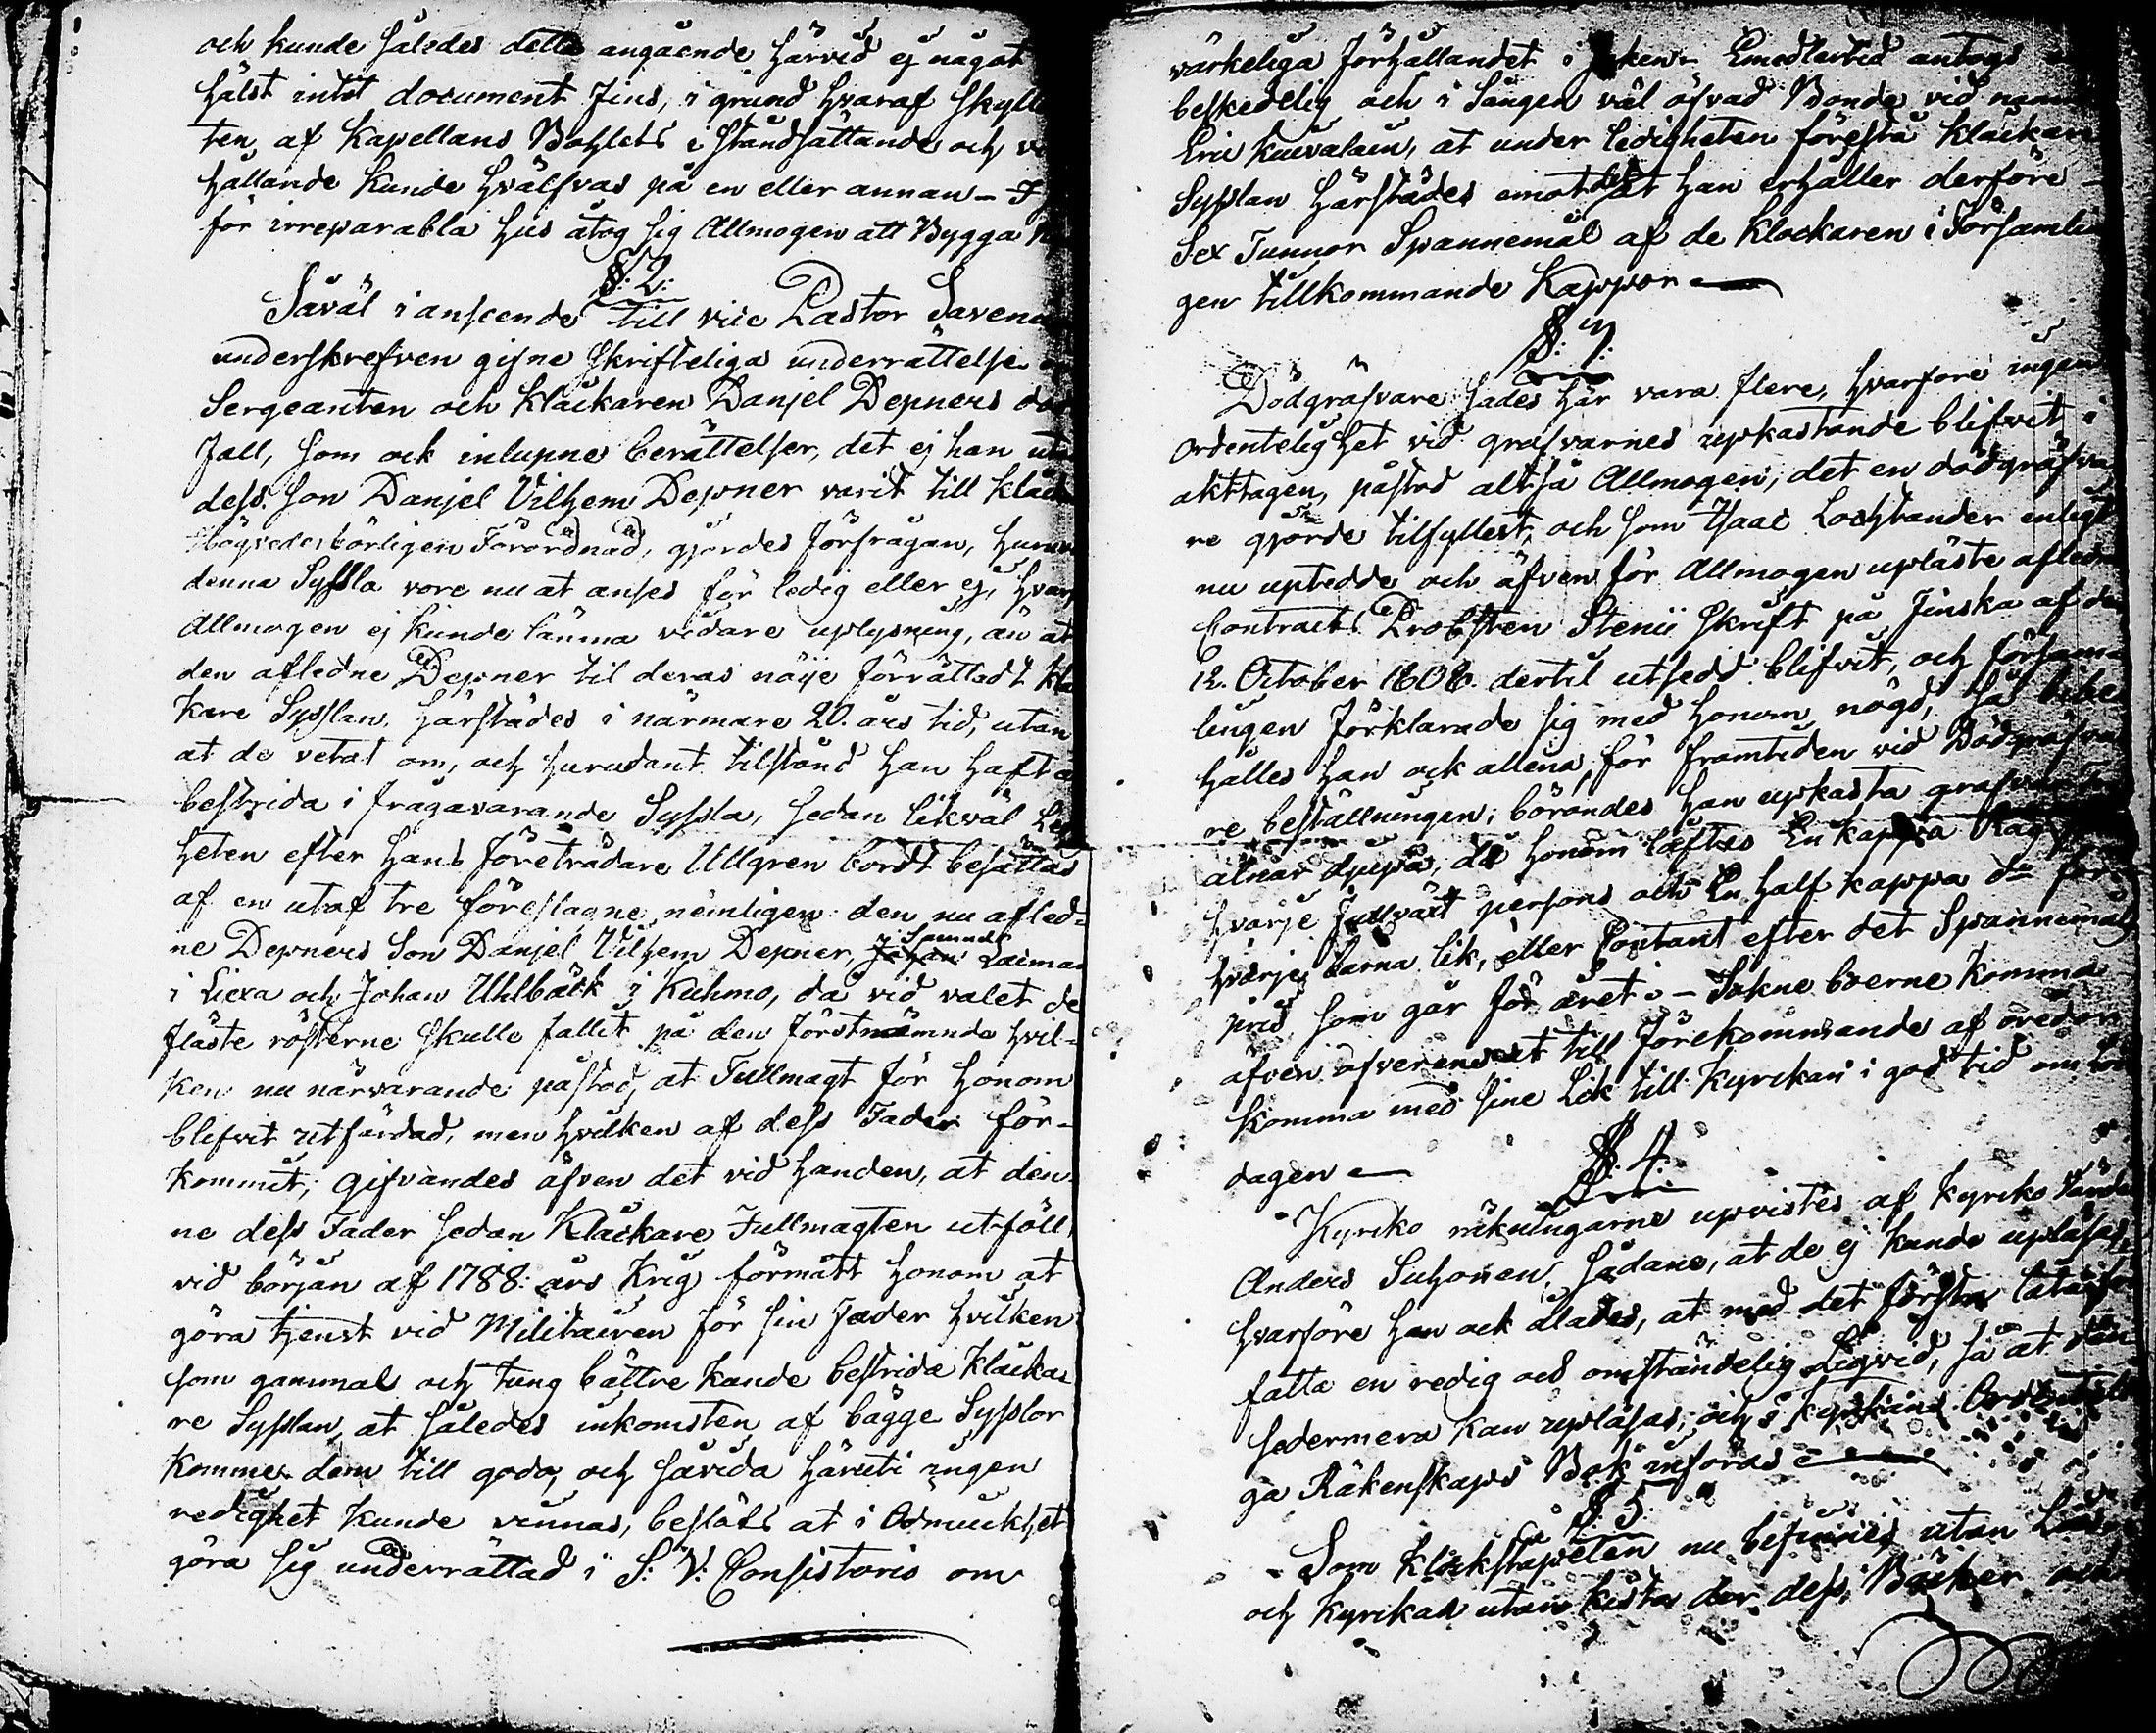 och kunde således detta angående härvid ej något
hälst intet document fins, i grund hvaraf skyll
ten af Kapellans Bohlets i ståndsättande och
hållande kunde hvälfvas på en eller annan -
för irreparabla hus åtog sig Allmogen att Bygga
§. 2.
Såväl i anseende till vice Pastor
underskrefven gifne skrifteliga underrättelse
Sergeanten och Klåckaren Danjel Depners
fall, som ock inlupne berättelser, det ej han
dess Son Danjel Vilhem Depner varit till
vederbörligen Förordnad, gjordes förfrågan,
denna Syssla vore nu at anses för ledig eller ej,
Allmogen ej kunde lämna vidare uplysning, än at
den afledne Depner til deras nöije förrättadt
kare Sysslan härstädes i närmare 20. års tid, utan
at de vetat om, och hurudant tilstånd han haft
bestrida i frågavarande Syssla, sedan likväl
heten efter hans företrädare Ullgren bordt besättas
af en utaf tre föreslagne, nemligen: den nu afled-
ne Depners Son Danjel Vilhem Depner, Johan Samuel
i Liexa och Johan Uhlbäck i Kuhmo, då vid valet de
fläste rösterne skulle fallit på den förstnämnde hvil-
ken nu närvarande påstod, at Fullmagt för honom
blifvit utfärdad, men hvilken af dess Fader för-
kommit; gifvandes äfven det vid handen, at den-
ne dess Fader sedan Klåckare Fullmagten utföll
vid början af 1788: års Krig förmått honom at
göra tjenst vid Militairen för sin Fader hvilken
som gammal och tung bättre kunde bestrida Klåcka-
re Sysslan, at således inkomsten af bägge Sysslor
komme dem till godo, och såvida häruti ingen
redighet kunde vinnas, beslöts at i Ödmiukhet
göra sig underrättad i S: V: Consistorio om
värkeliga förhållandet i saken. Emedlertid antogs
beskedelig och i Sången väl öfvad Bonde vid namn
Eric Kuivalain, at under ledigheten förestå Klåckare
Sysslan härstädes emot det at han erhåller derföre -
Sex Tunnor Spannemål af de Klockaren i Församlin
gen tillkommande Kappor
§. 3.
Dödgräfvare sades här vara flere, hvarföre ingen
ordentelighet vid grafvarnes upkastande blifvit i
akttagen, påstod altså Allmogen, det en dödgräfva
re gjorde tilfyllest, och som Isaac Lochtander enligt
nu uptedde och äfven för Allmogen upläste afledne
Contracts Probsten Stenii Skrift på Finska af den
12. October 1808. dertil utsedd blifvit, och försam-
lingen förklarade sig med honom nögd, så
hålles han ock allena för framtiden vid Dödgräfva
re beställningen; börandes han upkasta
alnar djupa, då honom låftes En kappa
hvarje fullväxt persons och En half kappa do för
hvarje barna lik, eller Contant efter det Spannemåls
pris som går för året: - Sokne boerne komma
äfven öfverens at till förekommande af oredor
komma med sine Lik till Kyrckan i god tid om
dagen
§. 4.
Kyrcko räkningarne upvistes af Kyrcko
Anders Suhonen, sådane, at de ej kunde upläsas,
hvarföre han ock ålades, at med det första låta
fatta en redig och omständelig Liqvid, så at den
sedermera kan upläsas, och i Kyrckans
ga Räkenskaps Bok införas
§. 5.
Som Klockstapelen nu befinnes utan
och Kyrckan utan kista der dess Böcker och